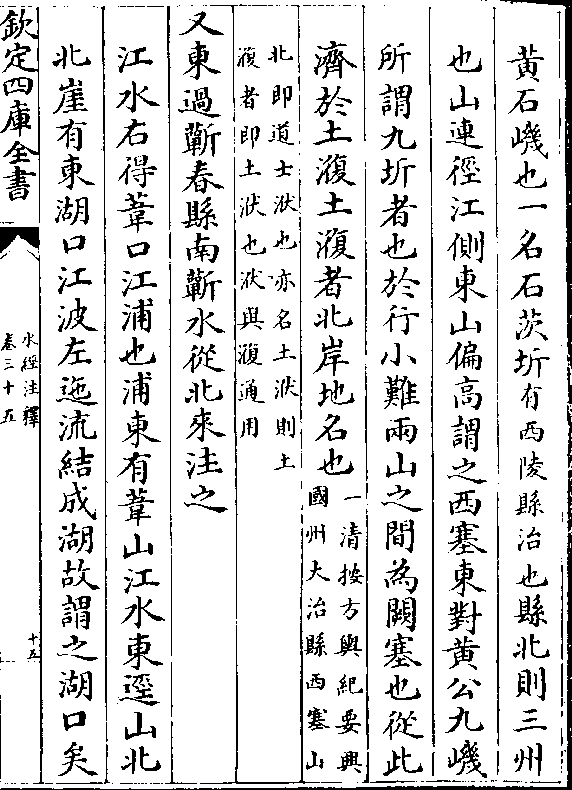 黄石磯也一名石茨圻有西陵縣治也縣北則三州
也山連徑江側東山偏高謂之西塞東對黄公九磯
所謂九圻者也於行小難兩山之間為闕塞也從此
濟於土澓土澓者北岸地名也一清按方輿紀要興
國州大冶縣西塞山
北即道士洑也亦名土洑則土
澓者即土洑也洑與澓通用
又東過蘄春縣南蘄水從北來注之
江水右得葦口江浦也浦東有葦山江水東逕山北
北崖有東湖口江波左迤流結成湖故謂之湖口矣
欽定四庫全書
水經注釋
卷三十五
十五